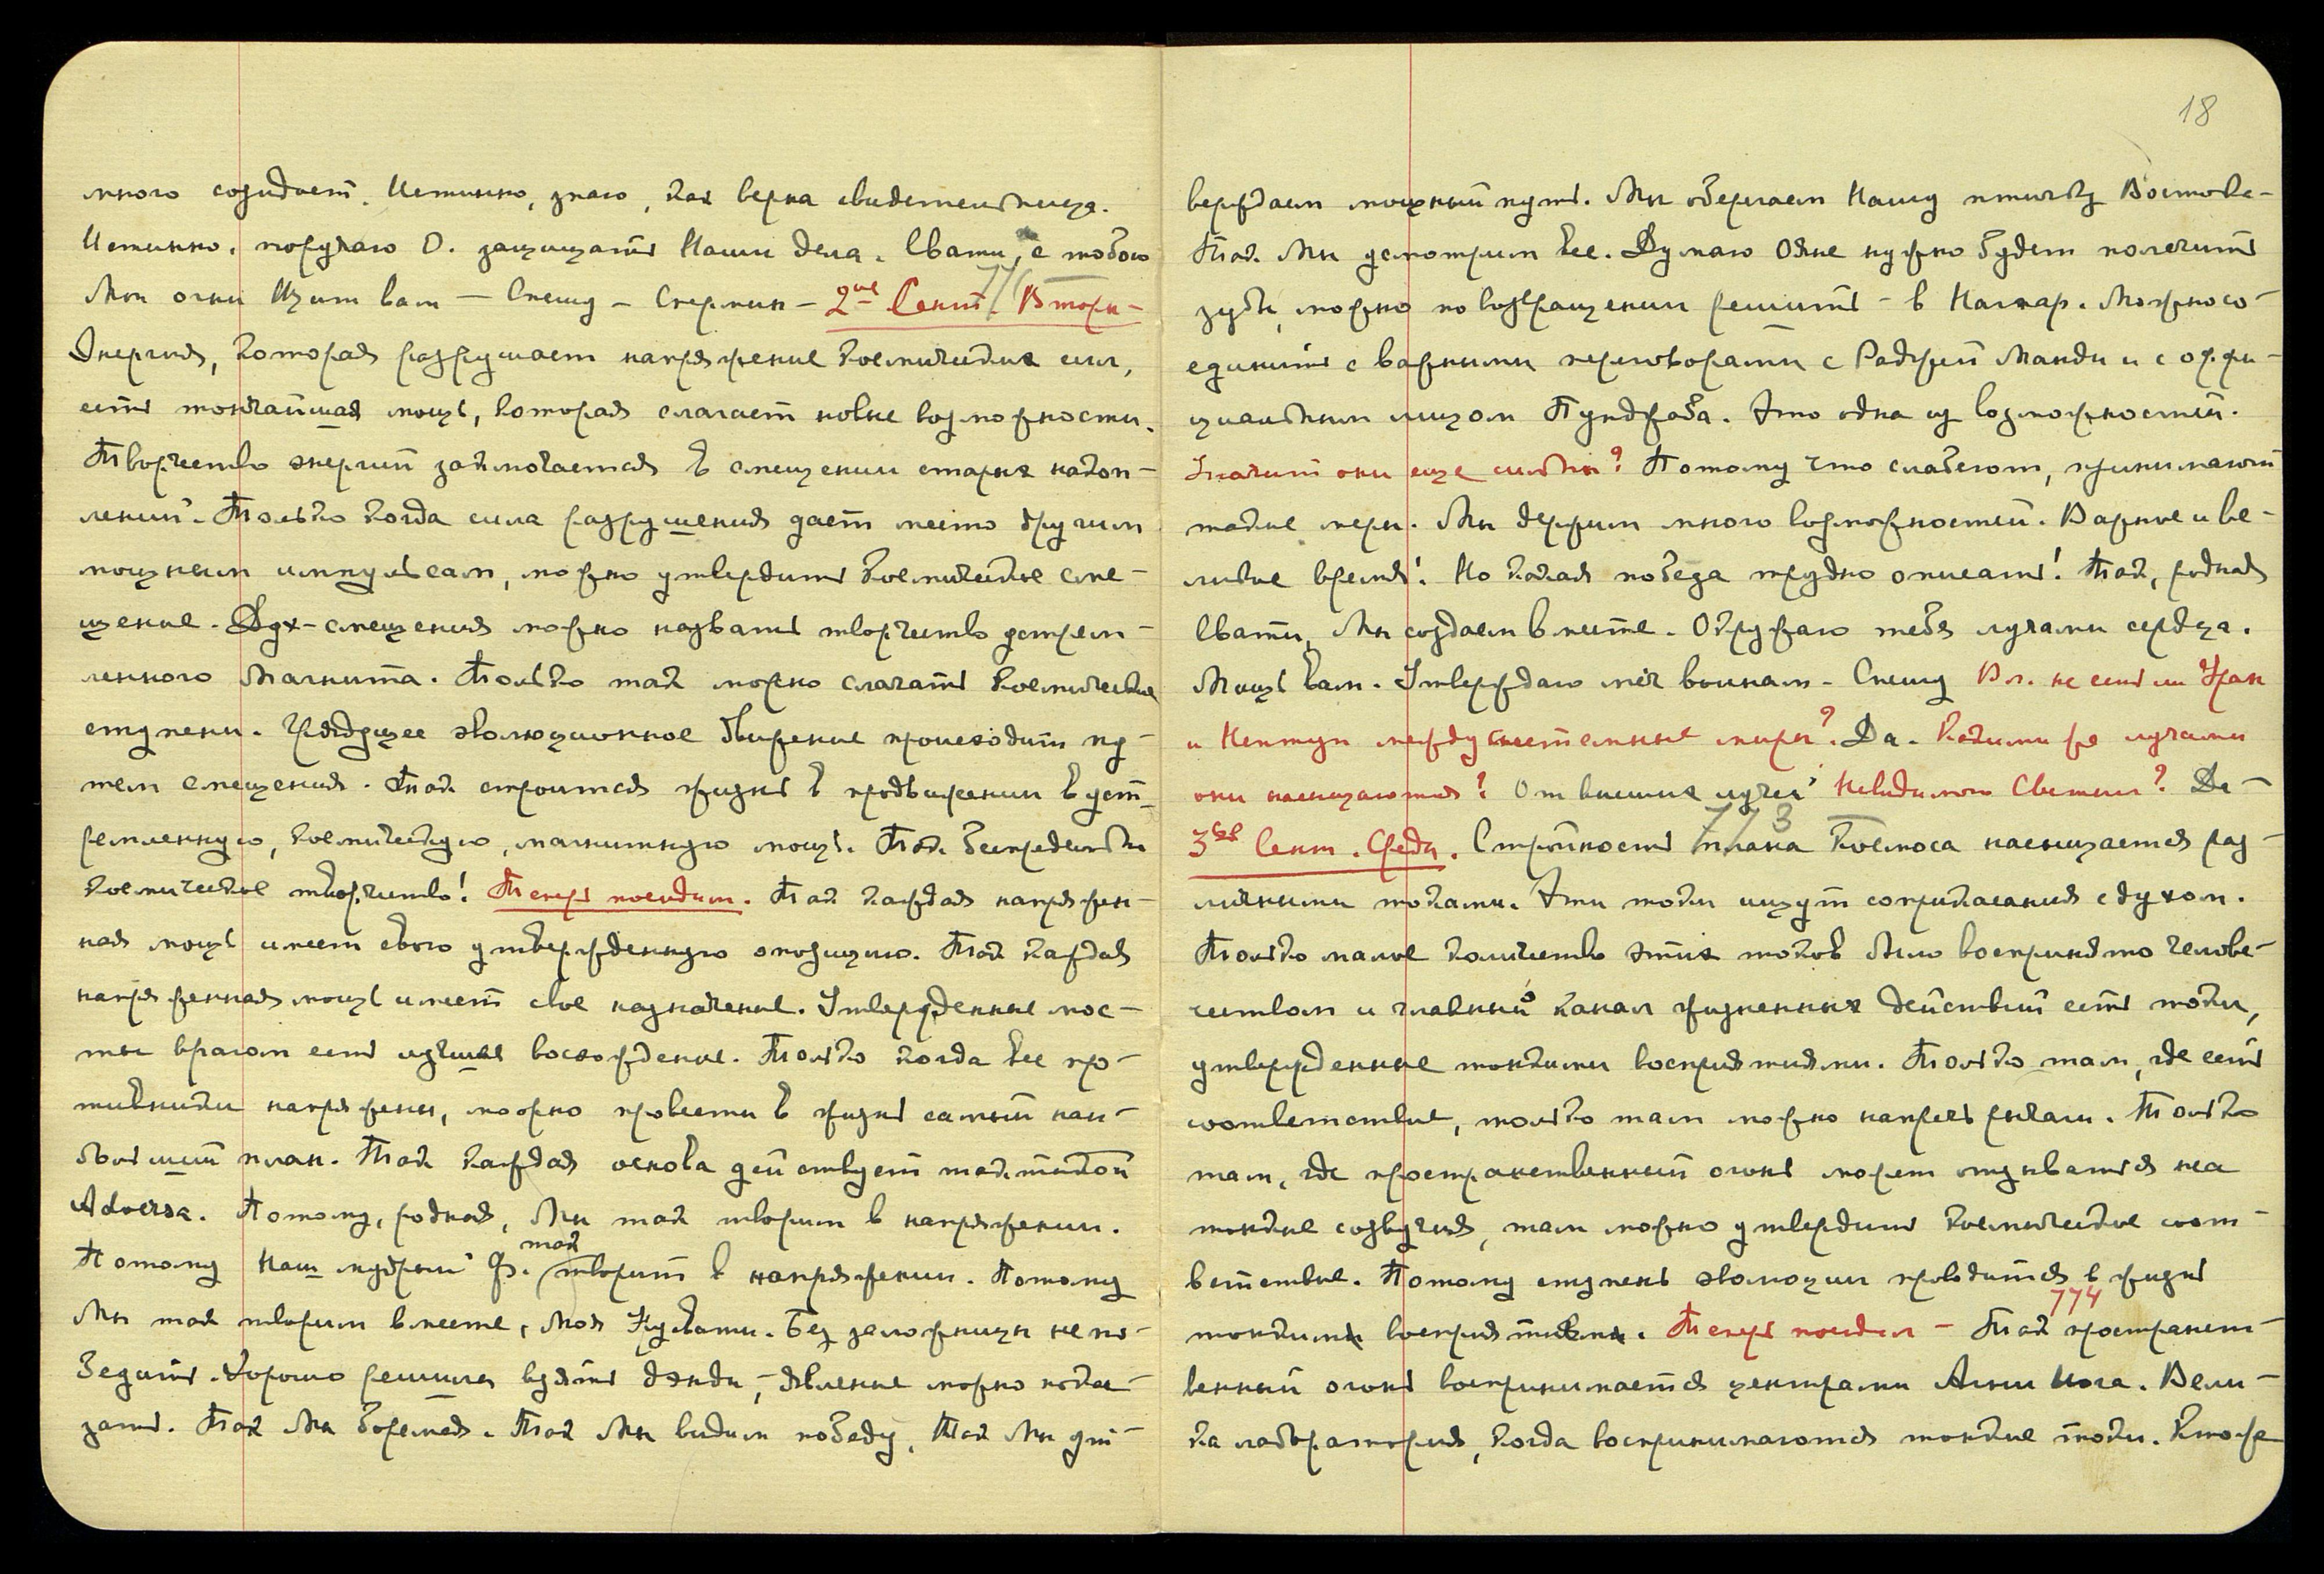 много созидает. Истинно, знаю, как верна свидетельница.
Истинно, поручаю О. защищать Наши дела. Свати, с тобою
Мои огни Щит вам — Спешу — Сгермин — 2ое Сент. Вторн —
Энергия, которая разрушает напряжение космических сил,
есть тончайшая мощь, которая слагает новые возможности.
Творчество энергий заключается в смещении старых накоп-
лений. Только когда сила разрушения дает место другим
мощным импульсам, можно утвердить космическое сме-
щение. Дух-смещения можно назвать творчество устрем-
ленного Магнита. Только так можно слагать космические
ступени. Грядущее эволюционное движение происходит пу-
тем смещения. Так строится жизнь в продвижении в уст-
ремленную, космическую, магнитную мощь. Так беспредельно
космическое творчество! Теперь посидим. Так каждая напряжен-
ная мощь имеет свою утвержденную опозицию. Так каждая
напряженная мощь имеет свое назначение. Утвержденные мос-
ты врагом есть лучшее восхождение. Только когда все про-
тивники напряжены, можно провести в жизнь самый наи-
больший план. Так каждая основа действует тактикой
Adversa. Потому, родная, Мы так творим в напряжении.
так
Потому Наш мудрый Ф. творит в напряжении. Потому
Мы так творим вместе, Моя Кувати. Без заложницы не по-
бедить. Хорошо решили взять дэнди, — явление можно пока-
зать. Так Мы боремся. Так Мы видим победу, Так Мы ут-
18
верждаем мощный путь. Мы оберегаем Нашу птичку Востока —
Так Мы усмотрим все. Думаю Ояне нужно будет полечить
зубы, можно по возвращении решить — в Наггар. Можно со-
единить с важными переговорами с Раджей Манди и с оффи-
циальным лицом Пунджаба. Это одна из возможностей.
Значит они еще сильны? Потому что слабеют, принимают
такие меры. Мы держим много возможностей. Важное и ве-
ликое время! Но какая победа трудно описать! Так, родная
Свати, Мы создаем вместе. Окружаю тебя лучами сердца.
Мощь вам. Утверждаю меч воинам — Спешу Вл. не есть ли Уран
и Нептун междусистемные миры? Да. Какими же лучами
они насыщаются? От высших лучей Невидимого Светила? Да —
773
3ье Сент. Среда. Стройность плана Космоса насыщается раз-
личными токами. Эти токи ищут соприкасания с духом.
Только малое количество этих токов было воспринято челове-
чеством и главный канал жизненных действий есть токи,
утвержденные тонкими восприятиями. Только там, где есть
соответствие, только там можно напрячь рычаги. Только
там, где пространственный огонь может отзываться на
тонкие созвучия, там можно утвердить космическое соот-
ветствие. Потому ступень эволюции проводится в жизнь
774
тонкими восприятиями. Теперь посидим — Так пространст-
венный огонь воспринимается центрами Агни Йога. Вели-
ка лаборатория, когда воспринимаются тонкие токи. Кто же